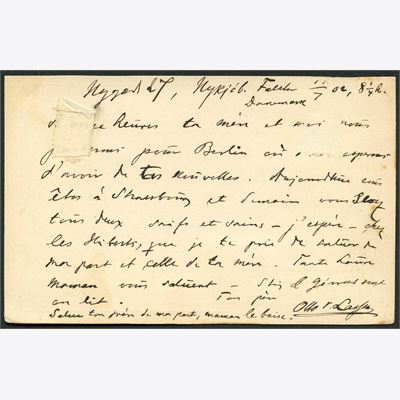 Nygade 27, Nykjöb. Falster 11/7 02, 8¼ A.
Danemark
heures ta mère et moi nous
pour Berlin où nous espérons
d'avoir de tes nouvelles. Aujourd'hui vous
êtes à Strasbourg et demain vous serez
tous deux saufs et sains – j'espère – chez
les Hibertis, que je te prie de saluer de
ma part et celle de ta mère. Tante Laura
Maman vous saluent –
au lit. Ton père
Otto v.
Salue ton frère de ma part, maman le baise.